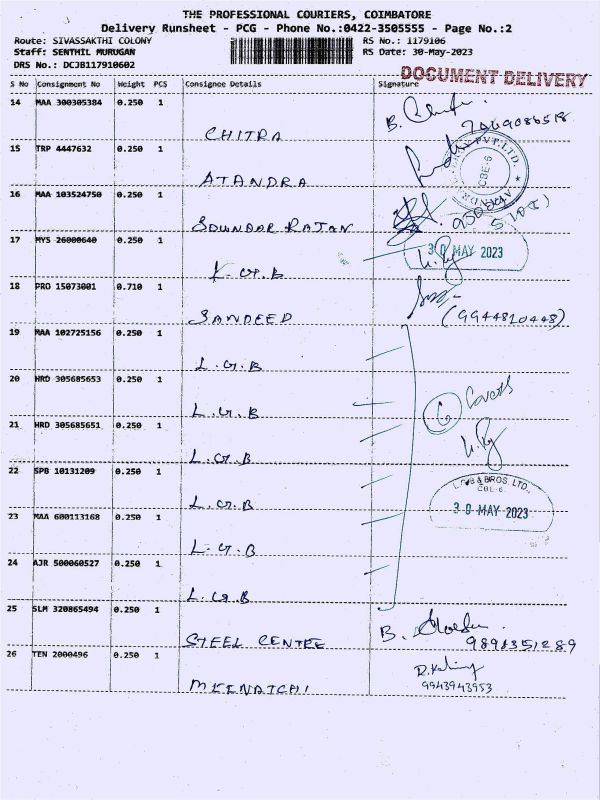 THE PROFESSIONAL COURIERS, COIMBATORE
Delivery Runsheet - PCG - Phone No.:0422-3505555 - Page No.:2
Route: SIVASSAKTHI COLONY RS No.: 1179106
Staff: SENTHIL MURUGAN RS Date: 30-May-2023
DRS No.: DCJB117910602
DOCUMENT DELIVERY
S No Consignment No Weight PCS Consignee Details Signature
14 MAA 300305384 0.250 1
CHITRA
15 TRP 4447632 0.250 1
ATANDRA
PVT.LTD
CBE-6
16 MAA 103524750 0.250 1
SOUNDAR RAJAN
17 MYS 26000640 0.250 1
30 MAY 2023
K.G.B
18 PRO 15073001 0.710 1
SANDEED
(9944810448)
19 MAA 102725156 0.250 1
L.G.B
20 HRD 305685653 0.250 1
L.G.B
6 Covers
21 HRD 305685651 0.250 1
L.G.B
22 SPB 10131209 0.250 1
L.G.B
& BROS LTD.,
CBE-6.
30 MAY 2023
23 MAA 600113168 0.250 1
L.G.B
24 AJR 500060527 0.250 1
L.G.B
25 SLM 320865494 0.250 1
STEEL CENTRE
9894351289
26 TEN 2000496 0.250 1
MEENATCHI
9943943953